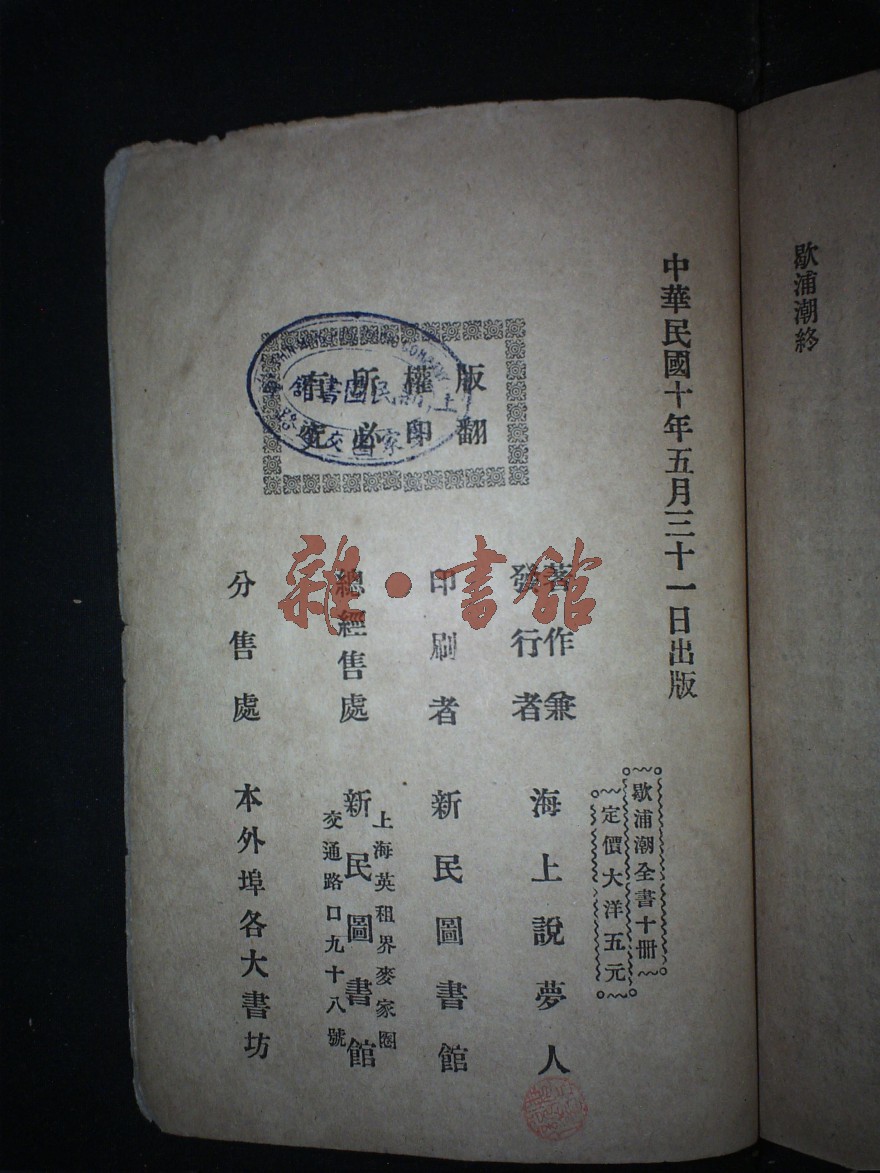 歇浦潮終
中華民國十年五月三十一日出版
歇浦潮全書十冊
定價大洋五元
版權所有
翻印必究
著作兼
發行者
海上說夢人
印刷者 新民圖書館
總經售處 新民圖書館
上海英租界麥家圈
交通路口九十八號
分售處 本外埠各大書坊
雜·書館